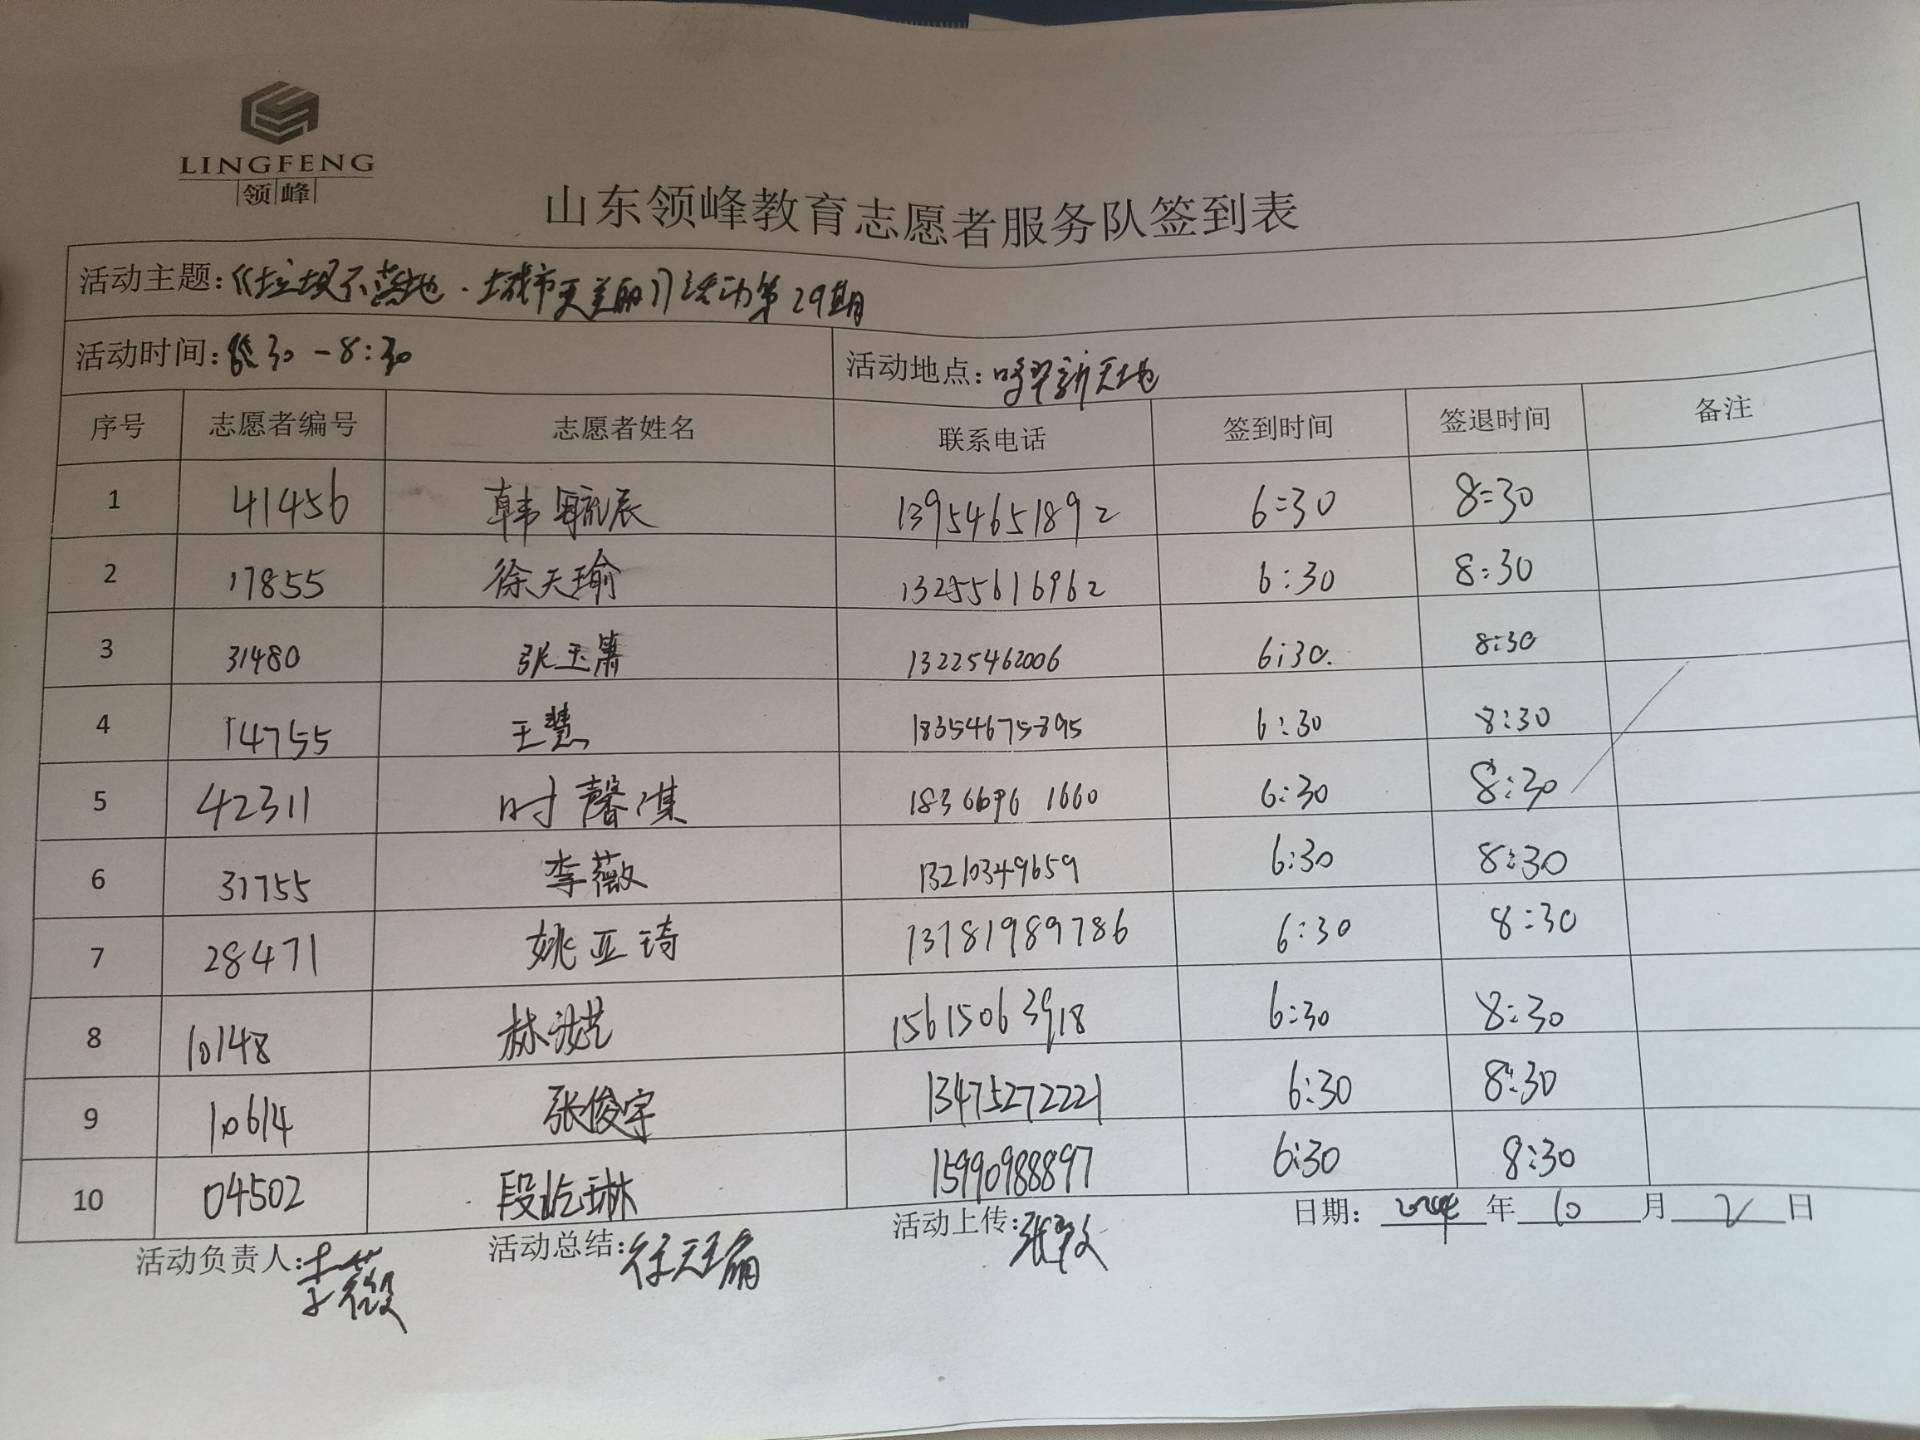 LINGFENG
领峰
山东领峰教育志愿者服务队签到表
活动主题:《垃圾不落地·城市更美丽》活动第29期
活动时间: 6:30-8:30 活动地点: 新天地
序号 志愿者编号 志愿者姓名 联系电话 签到时间 签退时间 备注
1 41456 韩毓辰 13954651892 6:30 8:30
2 17855 徐天瑜 13255616962 6:30 8:30
3 31480 张玉箫 13225462006 6:30. 8:30
4 14755 王慧 18354675895 6:30 8:30
5 42311 时馨淇 1660 6:30 8:30
6 31755 李薇 13210349659 6:30 8:30
7 28471 姚亚琦 13781989786 6:30 8:30
8 10148 15615063918 6:30 8:30
9 10614 张俊宇 13475272221 6:30 8:30
10 04502 段屹琳 15990988897 6:30 8:30
活动负责人:李薇 活动总结:徐天瑜 活动上传: 日期: 2024 年 10 月 2 日